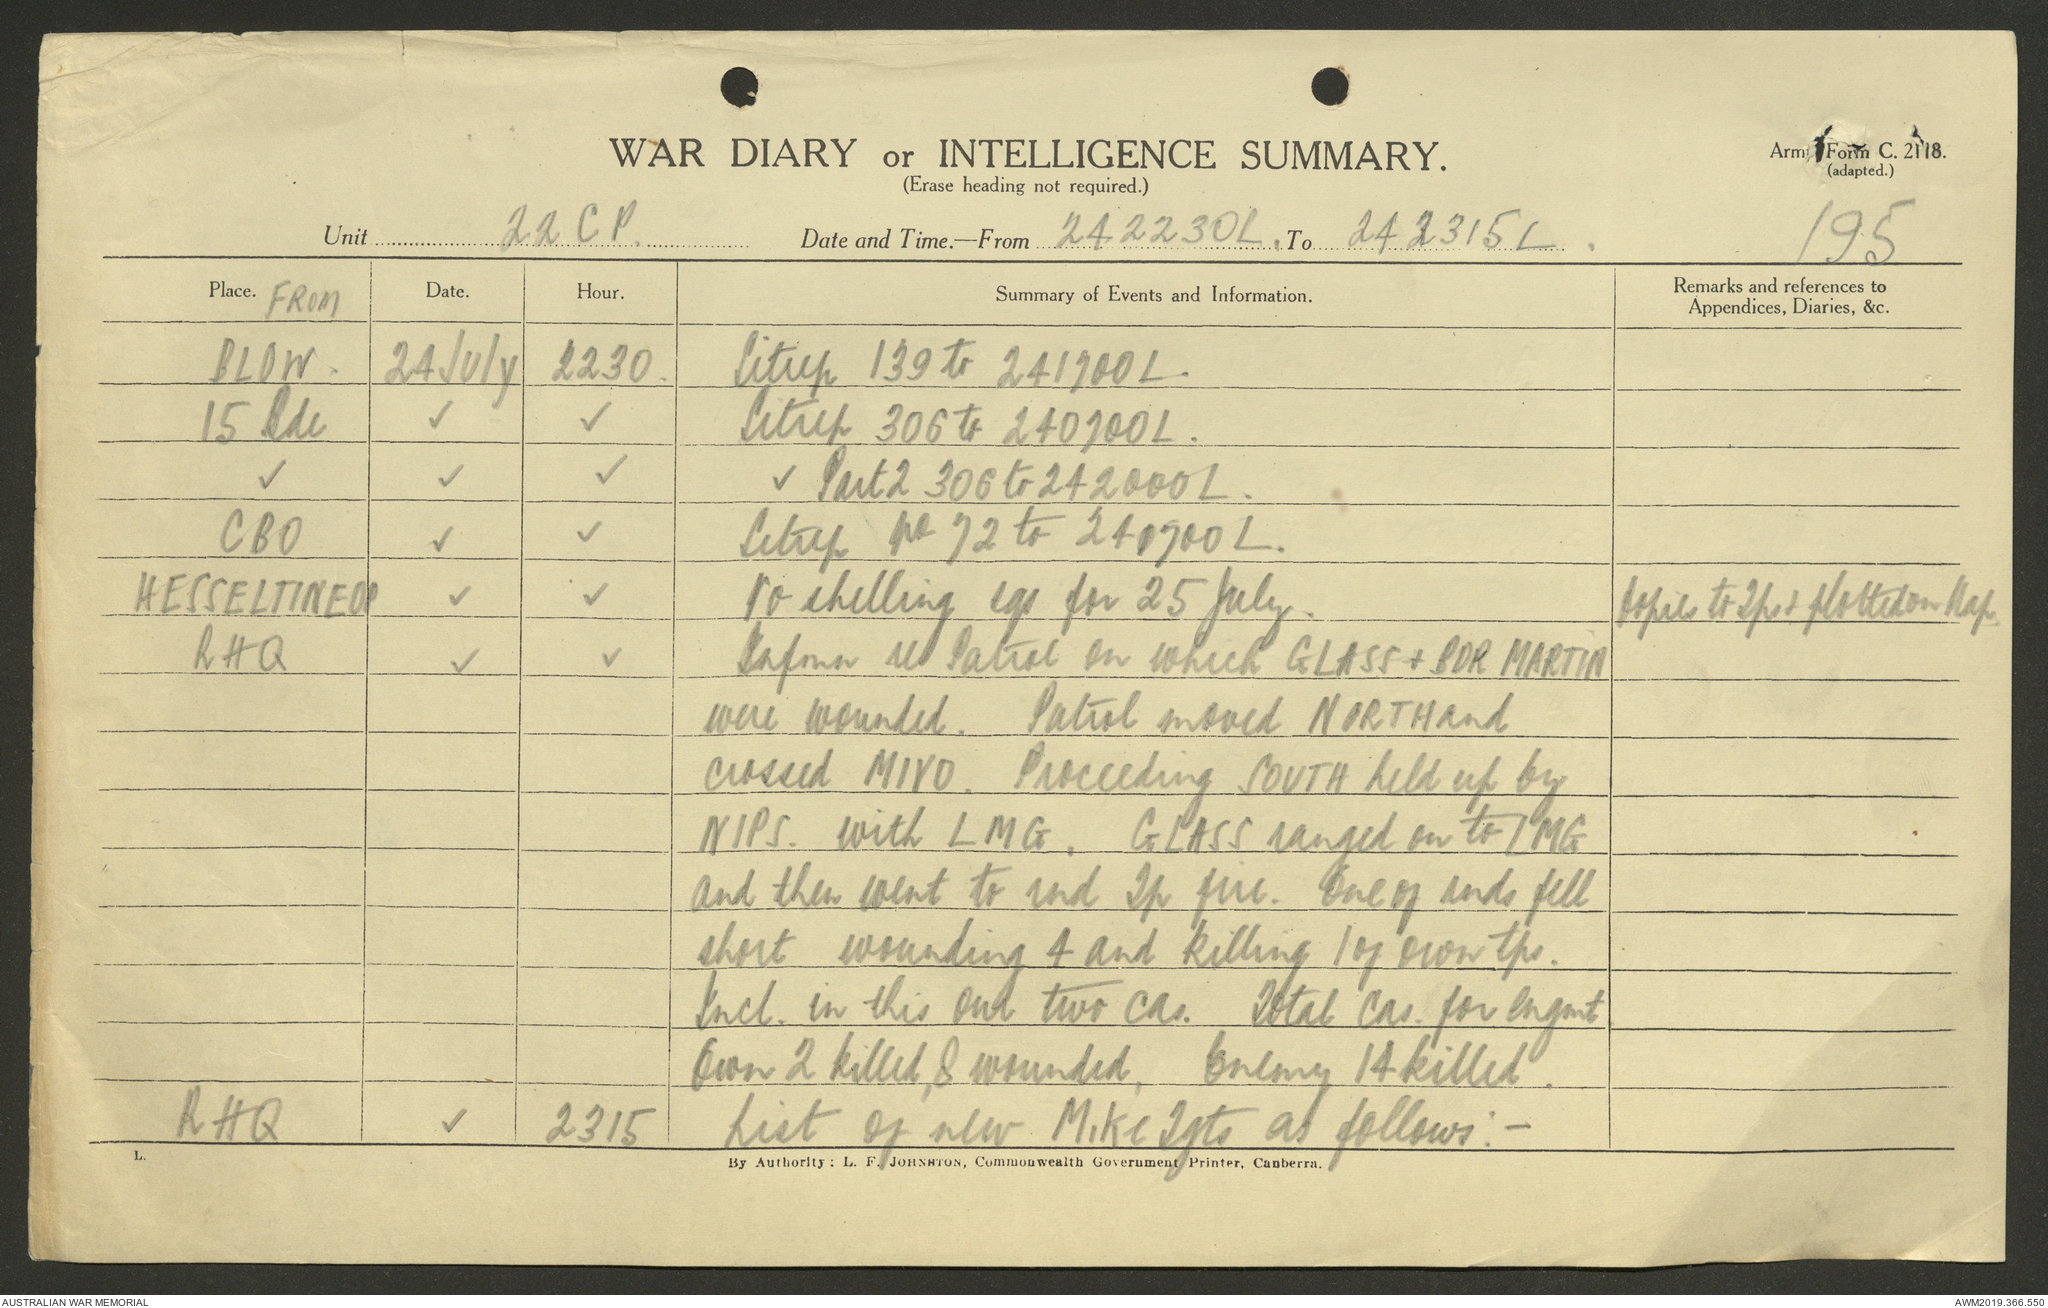 WAR DIARY or INTELLIGENCE SUMMARY.
(Erase heading not required.)
Army Form C. 2118.
(adapted.)
195
Unit 22 C P. Date and Time.—From 242230L. To 242315L.
Place. FROM Date. Hour. Summary of Events and Information. Remarks and references to Appendices, Diaries, &c.
BLOW. 24 July 2230. Sitrep 139 to 241900L.
15 Bde ✓ ✓ Sitrep 306 to 240900L.
✓ ✓ ✓ ✓ Part 2 306 to 242000L.
CBO ✓ ✓ Sitrep No 72 to 240900L.
HESSELTINE OP ✓ ✓ No shelling sgs for 25 July. Copies to 2ps + plotted on Map.
RHQ ✓ ✓ Inform re Patrol on which GLASS + BDR MARTIN
were wounded. Patrol moved NORTH and
crossed MIVO. Proceeding SOUTH held up by
NIPS. with LMG. GLASS ranged on to LMG
and then went to rnd Tp fire. One of rnds fell
short wounding 4 and killing 1 of own tps.
Incl. in this our two cas. Total cas. for engmt
Own 2 killed, 8 wounded, Enemy 14 killed.
RHQ ✓ 2315 List of new Mike Tgts as follows:-
L.
By Authority: L. F. JOHNSTON, Commonwealth Government Printer, Canberra.
AUSTRALIAN WAR MEMORIAL
AWM2019.366.550